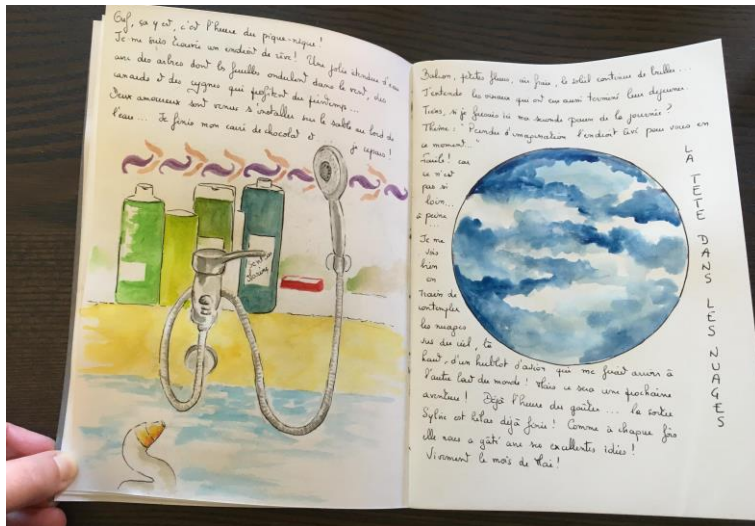 Ouf, ça y est, c'est l'heure du pique-nique !
Je me suis trouvée un endroit de rêve ! Une jolie étendue d'eau
avec des arbres dont les feuilles ondulent dans le vent, des
canards et des cygnes qui profitent du printemps...
Deux amoureux sont venus s'installer sur le sable au bord de
l'eau... Je finis mon carré de chocolat et je repars !
Balcon, petites fleurs, air frais, le soleil continue de briller...
J'entends les oiseaux qui ont eux aussi terminé leur déjeuner.
Tiens, si je faisais ici ma seconde pause de la journée ?
Thème : " d'imagination l'endroit rêvé pour vous en
ce moment..."
Facile ! car
ce n'est
pas si
loin...
à peine
...
Je me
vois
bien
en
train de
contempler
les nuages
vus du ciel, là
haut, d'un hublot d'avion qui me ferait
l'autre bout du monde ! Mais ce sera une prochaine
aventure ! Déjà l'heure du goûter... la sortie
Sylvie est hélas déjà finie ! Comme à chaque fois
elle nous a gâté avec ses excellentes idées !
Vivement le mois de Mai !
LA TÊTE DANS LES NUAGES